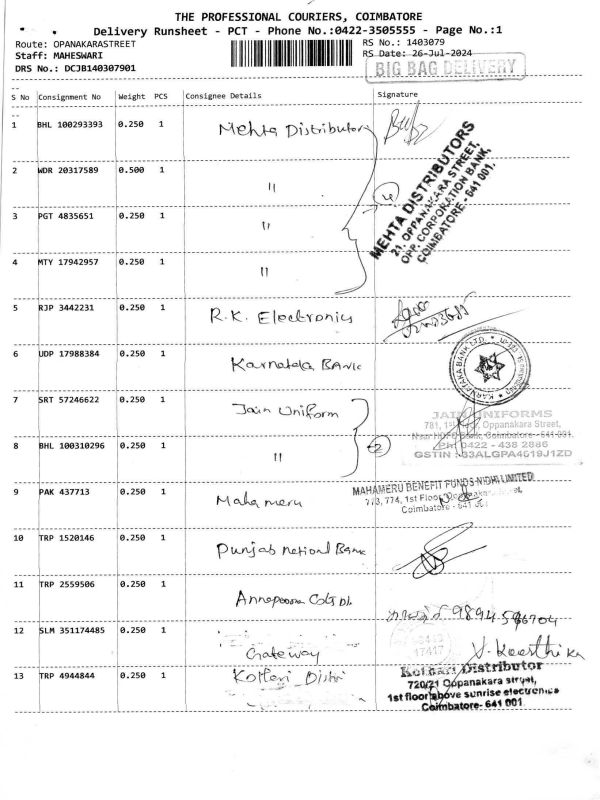 THE PROFESSIONAL COURIERS, COIMBATORE
Delivery Runsheet - PCT - Phone No.:0422-3505555 - Page No.:1
Route: OPANAKARASTREET
RS No.: 1403079
Staff: MAHESWARI
RS Date: 26-Jul-2024
DRS No.: DCJB140307901
BIG BAG DELIVERY
S No Consignment No Weight PCS Consignee Details Signature
1 BHL 100293393 0.250 1 Mehta Distributors
MEHTA DISTRIBUTORS
21, OPPANAKARA STREET,
OPP. CORPORATION BANK,
COIMBATORE - 641 001.
2 WDR 20317589 0.500 1 "
4
3 PGT 4835651 0.250 1 "
4 MTY 17942957 0.250 1 "
5 RJP 3442231 0.250 1 R.K. Electronics
6 UDP 17988384 0.250 1 Karnataka Bank
KARNATAKA BANK LTD.
7 SRT 57246622 0.250 1 Jain Uniform
JAIN UNIFORMS
781, 1st Floor, Oppanakara Street,
Near HDFC Bank, Coimbatore - 641 001.
Ph: 0422 - 438 2886
GSTIN : 33ALGPA4619J1ZD
8 BHL 100310296 0.250 1 "
2
9 PAK 437713 0.250 1 Maha meru
MAHAMERU BENEFIT FUNDS NIDHI LIMITED
773, 774, 1st Floor, Oppanakara Street,
Coimbatore - 641 001
10 TRP 1520146 0.250 1 Punjab national Bank
11 TRP 2559506 0.250 1 Annapoorna
12 SLM 351174485 0.250 1 Gateway
V. Keerthika
13 TRP 4944844 0.250 1 Kothari Distri
Kothari Distributor
720/21 Oppanakara street,
1st floor above sunrise electronics
Coimbatore- 641 001